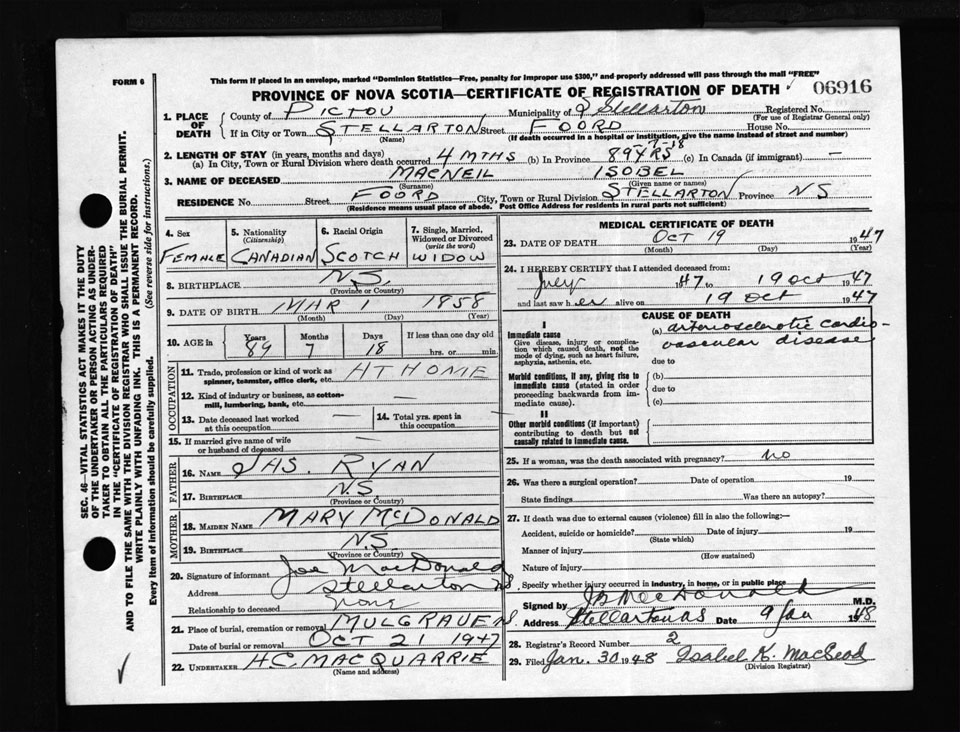 FORM 6
This form if placed in an envelope, marked "Dominion Statistics—Free, penalty for improper use $300," and properly addressed will pass through the mail "FREE"
PROVINCE OF NOVA SCOTIA—CERTIFICATE OF REGISTRATION OF DEATH
06916
1. PLACE OF DEATH
County of PICTOU Municipality of Stellarton Registered No.
(For use of Registrar General only)
If in City or Town STELLARTON Street FOORD House No.
(Name) (If death occurred in a hospital or institution, give the name instead of street and number)
2. LENGTH OF STAY (in years, months and days)
(a) In City, Town or Rural Division where death occurred 4 MTHS (b) In Province 89 YRS -7-18 (c) In Canada (if immigrant) —
3. NAME OF DECEASED MACNEIL ISOBEL
(Surname) (Given name or names)
RESIDENCE No. Street FOORD City, Town or Rural Division STELLARTON Province NS
(Residence means usual place of abode. Post Office Address for residents in rural parts not sufficient)
4. Sex
FEMALE
5. Nationality
(Citizenship)
CANADIAN
6. Racial Origin
SCOTCH
7. Single, Married, Widowed or Divorced
(write the word)
WIDOW
8. BIRTHPLACE N.S.
(Province or Country)
9. DATE OF BIRTH MAR 1 1858
(Month) (Day) (Year)
10. AGE in
Years Months Days If less than one day old
89 7 18 hrs. or min.
OCCUPATION
11. Trade, profession or kind of work as spinner, teamster, office clerk, etc. AT HOME
12. Kind of industry or business, as cotton-mill, lumbering, bank, etc. —
13. Date deceased last worked at this occupation —
14. Total yrs. spent in this occupation —
15. If married give name of wife or husband of deceased —
FATHER
16. NAME JAS. RYAN
17. BIRTHPLACE N.S.
(Province or Country)
MOTHER
18. MAIDEN NAME MARY MCDONALD
19. BIRTHPLACE N.S.
(Province or Country)
20. Signature of informant Joe MacDonald
Address Stellarton NS
Relationship to deceased none
21. Place of burial, cremation or removal MULGRAVE N.S.
Date of burial or removal OCT 21 1947
22. UNDERTAKER H.C. MACQUARRIE
(Name and address)
MEDICAL CERTIFICATE OF DEATH
23. DATE OF DEATH OCT 19 1947
(Month) (Day) (Year)
24. I HEREBY CERTIFY that I attended deceased from:
July 47 to 19 Oct 1947
and last saw h er alive on 19 Oct 1947
CAUSE OF DEATH
I
Immediate cause
Give disease, injury or complication which caused death, not the mode of dying, such as heart failure, asphyxia, asthenia, etc.
(a) arteriosclerotic cardio-
vascular disease
due to
Morbid conditions, if any, giving rise to immediate cause (stated in order proceeding backwards from immediate cause).
(b)
due to
(c)
II
Other morbid conditions (if important) contributing to death but not causally related to immediate cause.
25. If a woman, was the death associated with pregnancy? no
26. Was there a surgical operation? Date of operation 19
State findings Was there an autopsy?
27. If death was due to external causes (violence) fill in also the following:—
Accident, suicide or homicide? Date of injury 19
(State which)
Manner of injury
(How sustained)
Nature of injury
Specify whether injury occurred in industry, in home, or in public place
Signed by MacDonald M.D.
Address Stellarton NS Date 9 Jan 1948
28. Registrar's Record Number 2
29. Filed Jan. 30 1948 Isabel K. MacLeod
(Division Registrar)
SEC. 46—VITAL STATISTICS ACT MAKES IT THE DUTY
OF THE UNDERTAKER OR PERSON ACTING AS UNDER-
TAKER TO OBTAIN ALL THE PARTICULARS REQUIRED
IN THE "CERTIFICATE OF REGISTRATION OF DEATH"
AND TO FILE THE SAME WITH THE DIVISION REGISTRAR WHO SHALL ISSUE THE BURIAL PERMIT.
WRITE PLAINLY WITH UNFADING INK. THIS IS A PERMANENT RECORD.
Every item of information should be carefully supplied. (See reverse side for instructions.)